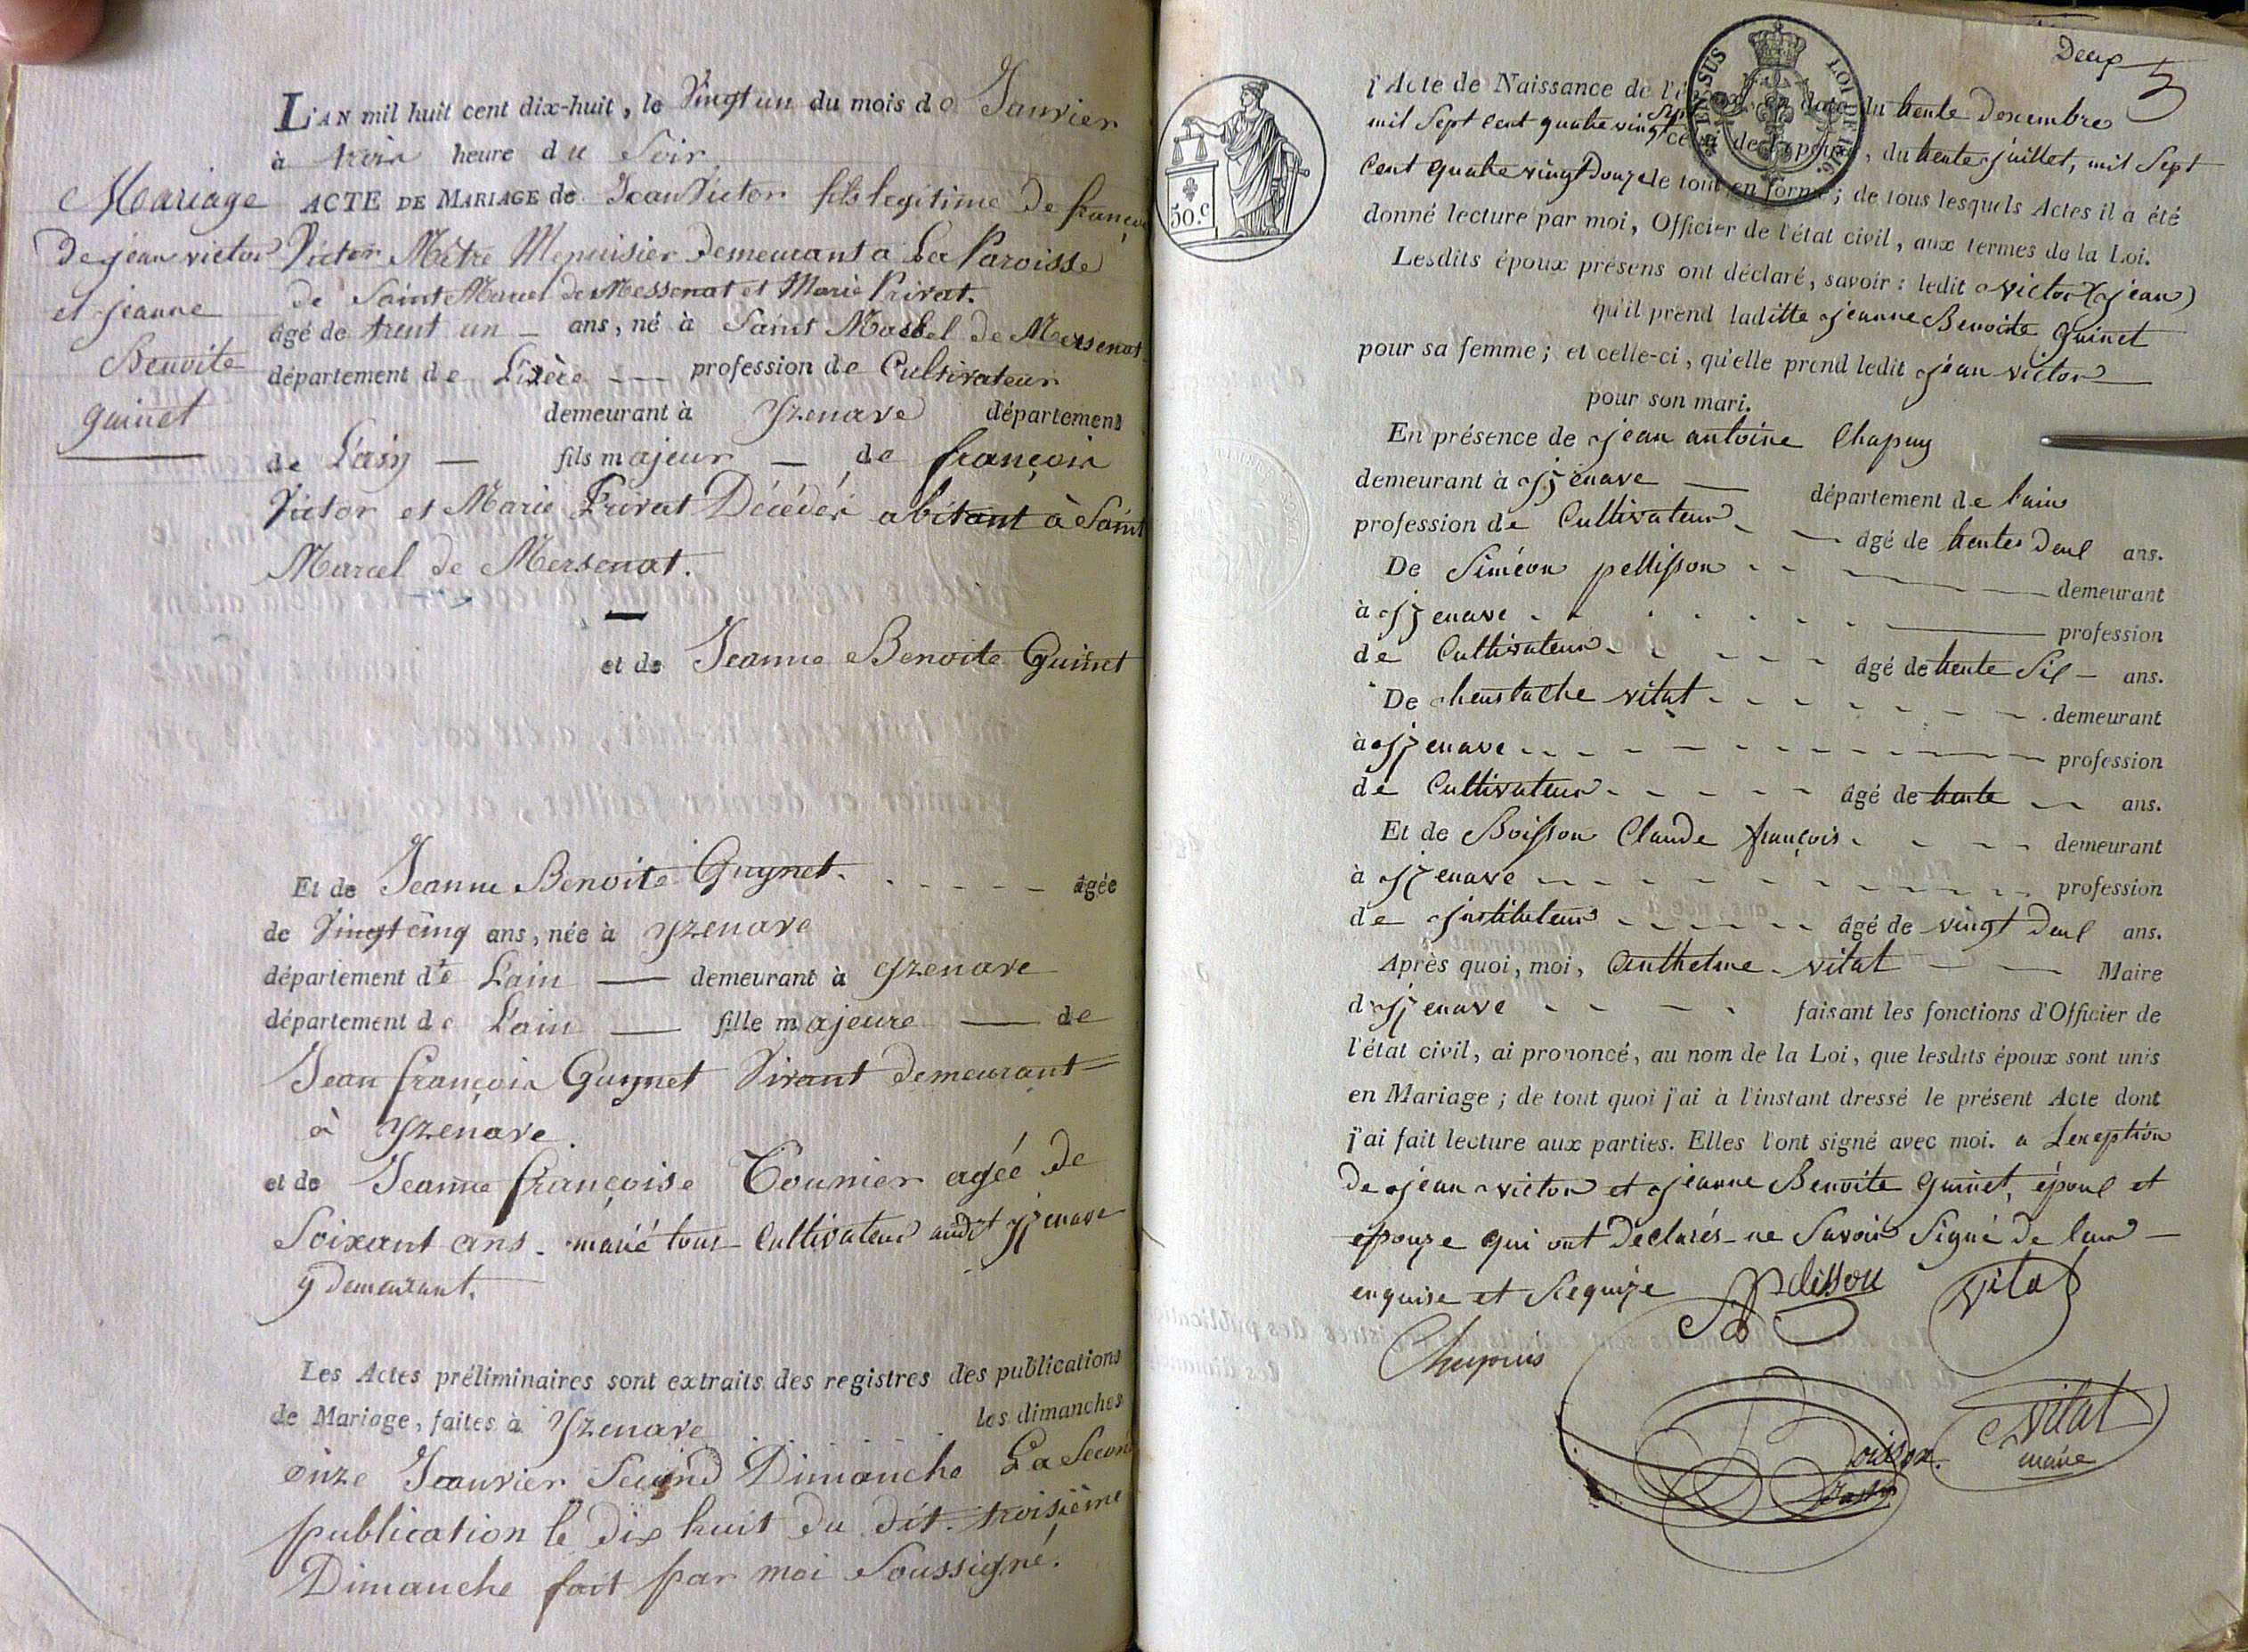 L'AN mil huit cent dix-huit, le Vingt un du mois de Janvier
à trois heure du Soir
Mariage
de jean victor
et jeanne
Benoite
guinet
ACTE DE MARIAGE de Jean Victor fils legitime De françois
Victor Mètre Menuisier Demeurant a La Paroisse
de Saint Marcel de Messenat et Marie Privat.
âgé de trent un ans, né à Saint Marcel de Mersenat
département de L'izère profession de Cultivateur
demeurant à Yzenave département
de L'ain fils majeur de françois
Victor et Marie Privat Décédés abitant à Saint
Marcel de Mersenat.
et de Jeanne Benoite Guinet
Et de Jeanne Benoite Guynet. âgée
de Vingt cinq ans, née à Yzenave
département de L'ain demeurant à Yzenave
département de L'ain fille majeure de
Jean françois Guynet Vivant demeurant
à Yzenave.
et de Jeanne françoise Tournier agéé de
Soixant ans. marié tous Cultivateur audt yzenave
y demeurant.
Les Actes préliminaires sont extraits des registres des publications
de Mariage, faites à Yzenave les dimanches
onze Janvier Second Dimanche La Second
publication le dix huit du dit troisième
Dimanche fait par moi Soussigné.
Deux
l'Acte de Naissance de l'époux, en date du trente Decembre
mil Sept Cent quatre vingt six celui de l'épouse, du trente juillet, mil Sept
Cent quatre vingt Douze le tout en forme; de tous lesquels Actes il a été
donné lecture par moi, Officier de l'état civil, aux termes de la Loi.
50.C
Lesdits époux présens ont déclaré, savoir: ledit victor (jean)
qu'il prend laditte jeanne Benoite guinet
pour sa femme; et celle-ci, qu'elle prend ledit jean victor
pour son mari.
En présence de jean antoine Chapuy
demeurant à yzenave département de l'ain
profession de Cultivateur âgé de trente deux ans.
De Siméon pellisson demeurant
à yzenave profession
de Cultivateur âgé de trente Six ans.
De heustache vitat demeurant
à yzenave profession
de Cultivateur âgé de trente ans.
Et de Boisson Claude françois demeurant
à yzenave profession
de instituteur âgé de vingt Deux ans.
Après quoi, moi, Anthelme vitat Maire
d'yzenave faisant les fonctions d'Officier de
l'état civil, ai prononcé, au nom de la Loi, que lesdits époux sont unis
en Mariage; de tout quoi j'ai à l'instant dressé le présent Acte dont
j'ai fait lecture aux parties. Elles l'ont signé avec moi. a Lexeption
de jean victor et jeanne Benoite guinet, époux et
epouze qui ont declarés ne Savoir Signé de leur
enquise et Requize
Pelisson
Vitat
Chapuis
Boisson
vitat
maire